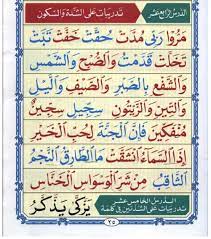 الدرس الرابع عشر تدريبات على الشدة والسكون
مَرُّوا رَبِّى مُدَّتْ حُقَّتْ خَفَّتْ تَبَّتْ
تَخَلَّتْ قَدَّمَتْ وَالصُّبْحِ وَالشَّمْسِ
وَالشَّفْعِ بِالصَّبْرِ وَالصَّيْفِ وَالَّيْلِ
وَالتِّينِ وَالزَّيْتُونِ سِجِّيلٍ سِجِّينٌ
مُنفَكِّينَ فَإِنَّ الْجَنَّةَ لِحُبِّ الْخَيْرِ
إِذَا السَّمَاءُ انشَقَّتْ مَا الطَّارِقُ النَّجْمُ
الثَّاقِبُ مِنْ شَرِّ الْوَسْوَاسِ الْخَنَّاسِ
الدرس الخامس عشر
تدريبات على الشدتين في كلمة
يَزَّكَّى يَذَّكَّرُ
٢٥